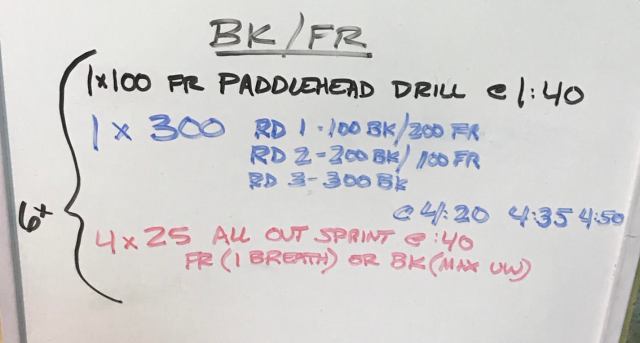 BK/FR
1x100 FR PADDLEHEAD DRILL @ 1:40
1 x 300 RD 1 - 100 BK/200 FR
RD 2 - 200 BK/100 FR
RD 3 - 300 BK
@ 4:20 4:35 4:50
6x
4 x 25 ALL OUT SPRINT @ :40
FR (1 BREATH) OR BK (MAX UW)